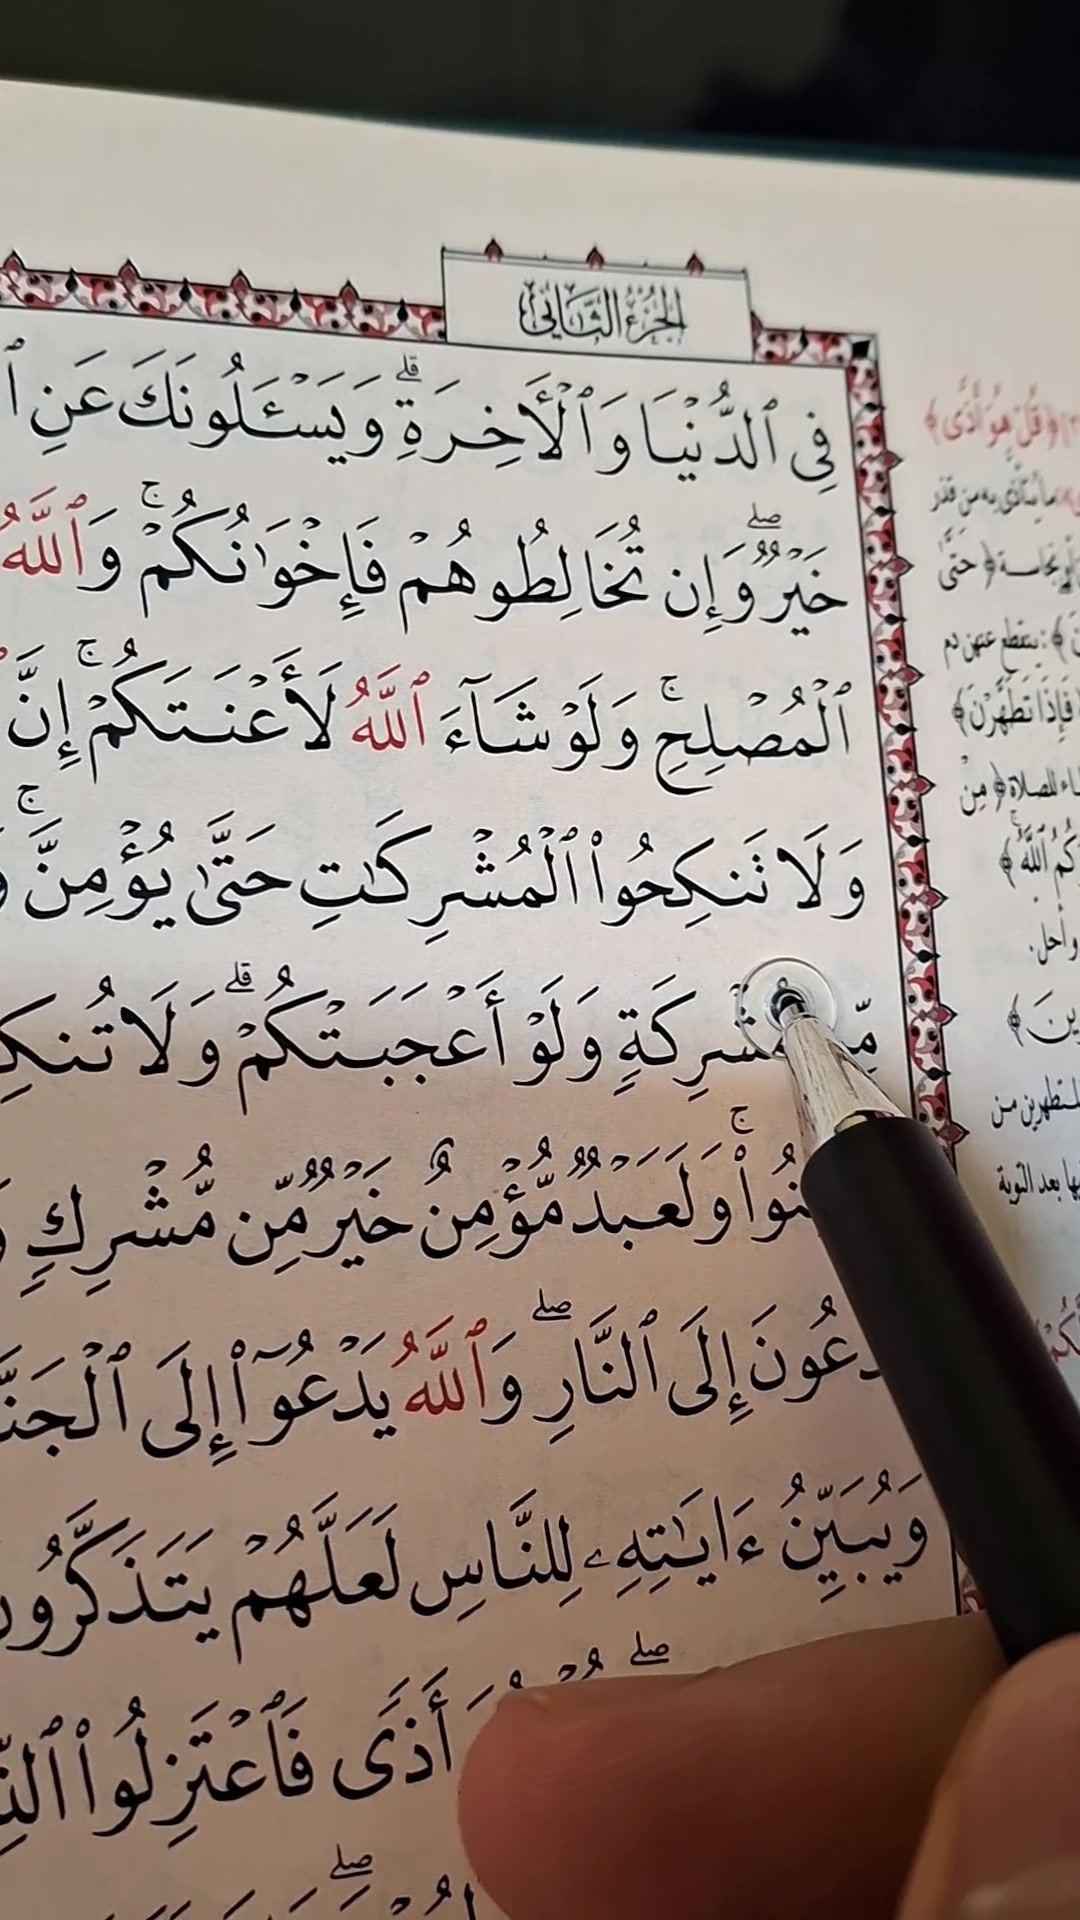 الجزء الثاني
فِي ٱلدُّنۡيَا وَٱلۡأٓخِرَةِۗ وَيَسۡـَٔلُونَكَ عَنِ
خَيۡرٞۖ وَإِن تُخَالِطُوهُمۡ فَإِخۡوَٰنُكُمۡۚ وَٱللَّهُ
ٱلۡمُصۡلِحِۚ وَلَوۡ شَآءَ ٱللَّهُ لَأَعۡنَتَكُمۡۚ إِنَّ
وَلَا تَنكِحُواْ ٱلۡمُشۡرِكَٰتِ حَتَّىٰ يُؤۡمِنَّۚ
مُّشۡرِكَةٖ وَلَوۡ أَعۡجَبَتۡكُمۡۗ وَلَا
وَلَعَبۡدٞ مُّؤۡمِنٌ خَيۡرٞ مِّن مُّشۡرِكٖ
إِلَى ٱلنَّارِۖ وَٱللَّهُ يَدۡعُوٓاْ إِلَى
وَيُبَيِّنُ ءَايَٰتِهِۦ لِلنَّاسِ لَعَلَّهُمۡ
أَذٗى فَٱعۡتَزِلُواْ
﴿قُلۡ هُوَ أَذٗى﴾
ما يتأذى به من قذر
﴿حَتَّىٰ
: ينقطع عنهن دم
﴿فَإِذَا تَطَهَّرۡنَ﴾
للصلاة ﴿مِنۡ
ٱللَّهُۚ﴾
وأحل.
بعد التوبة